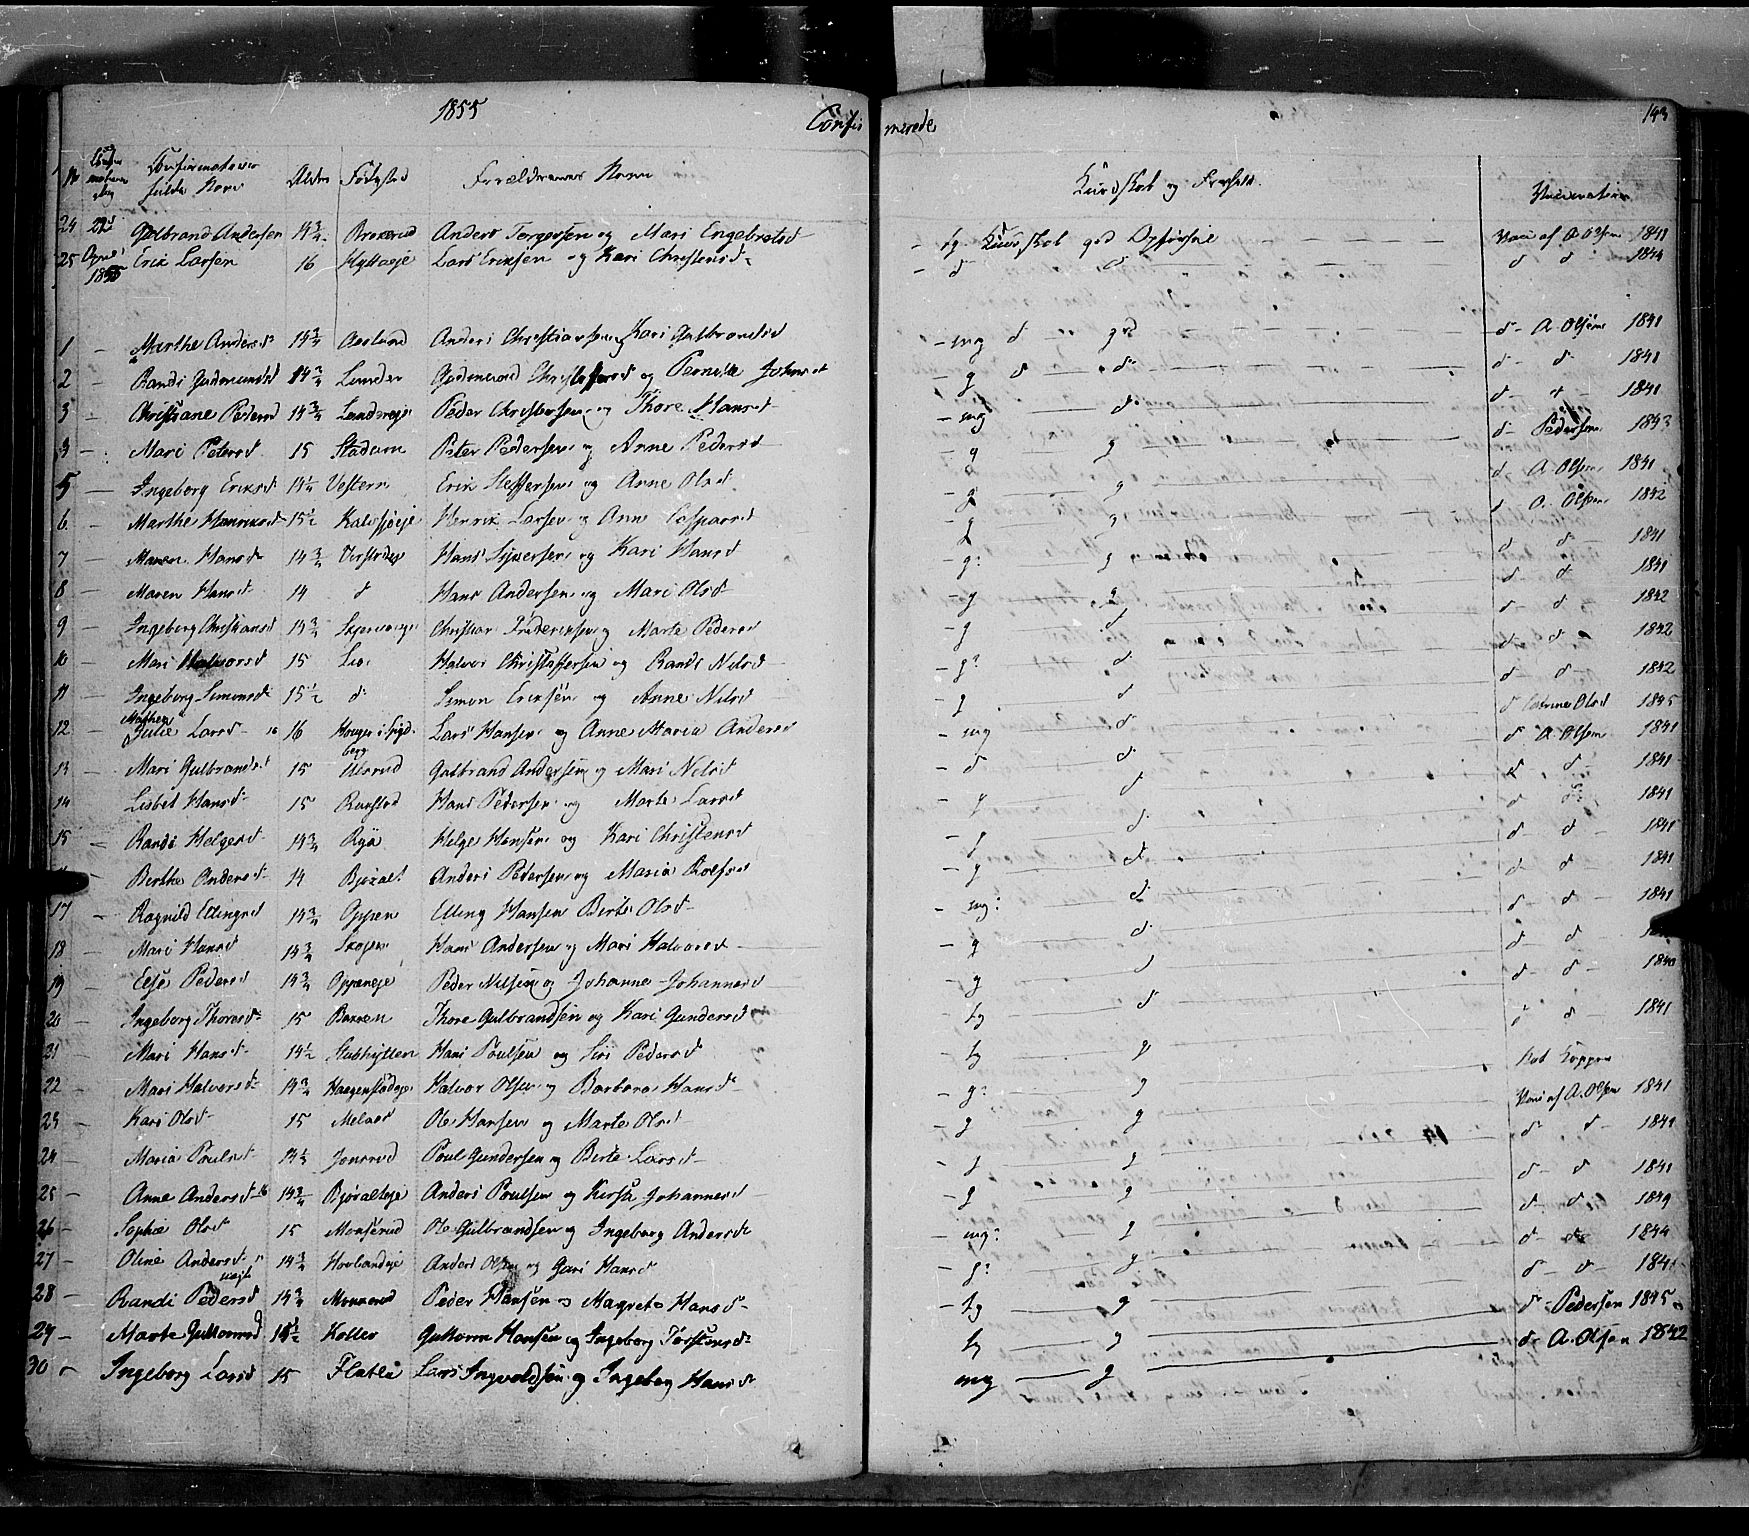 1855
Confir merede
143
N Confirmationsdag Confirmaternes fulde Navn Alder Fødested Forældrenes Navn Kundskab og Forhold Vaccination
24 22d Gulbrand Andersen 14 3/4 Anders Torgersen og Mari Engebretsd - tg Kundskab god Opførsel Vacc af A Olsen 1841
25 1855 Erik Larsen 16 Hytteeje Lars Eriksen og Kari Christensd - d d d d 1844
1 - Marthe Andersd 14 3/4 Aslund Anders Christiansen og Kari Gulbrandsd - mg d god d - A. Olsen 1841
2 - Randi Gudmundsd 14 3/4 Lunder Gudmund Christophersd og Pernille Johnsd - g d d d - d 1841
3 - Christiane Pedersd 14 3/4 Lundereje Peder Christensen og Thore Hansd - mg d d d 1841
4 - Mari Petersd 15 Stadum Peter Pedersen og Anne Pedersd - g g d - Pedersen 1843
5 - Ingeborg Eriksd 14 1/2 Vestern Erik Steffersen og Anne Olsd - g g d A. Olsen 1841
6 - Marthe Henriksd 15 1/2 Kalvsjøeje Henrik Larsen og Anne Caspersd - g g d A. Olsen 1842
7 - Maren Hansd 14 3/4 Hans Syversen og Kari Hansd - g: g d d 1841
8 - Maren Hansd 14 d Hans Andersen og Mari Olsd - g g d d 1841
9 - Ingeborg Christiansd 14 3/4 Christian Frederiksen og Marte Pedersd - g d d d 1842
10 - Mari Halvorsd 15 Lie Halvor Christoffersen og Randi Nilsd - g? d d d 1842
11 - Ingeborg Simensd 15 1/2 d Simen Eriksen og Anne Nilsd - g d d d 1842
12 - Mathea Julie Larsd 16 Lars Hansen og Anne Maria Andersd - mg d d Cathrine Olsd 1845
13 - Mari Gulbrandsd 15 Ulsrud Gulbrand Andersen og Mari Nilsd - d d d A. Olsen 1841
14 Lisbet Hansd 15 Ranstad Hans Pedersen og Marte Larsd - g d d d 1841
15 - Randi Helgesd 14 3/4 Rya Helge Hansen og Kari Christensd - g d d d 1841
Berthe Andersd 14 Bjøralt Anders Pedersen og Maria Rolfsd - g d d d 1841
17 - Ragnild Ellingsd 14 3/4 Oppen Elling Hansen Berte Olsd - mg: d d d 1841
18 Mari Hansd 14 3/4 Skogen Hans Andersen og Mari Halvorsd - g d d d
19 Else Pedersd 14 3/4 Oppeneje Peder Nilsen og Johanne Johannesd - g d d d 1840
20 - Ingeborg Thoresd 15 Bakken Thore Gulbrandsen og Kari Gundersd - tg d d d 1841
21 - Mari Hansd 14 1/2 Stubhytten Hans Poulsen og Siri Pedersd - tg g Nat. Kopper
22 - Mari Halvorsd 14 3/4 Haagenstadeje Halvor Olsen og Barbara Hansd - g: g Vacc af A. Olsen 1841
23 - Kari Olsd 15 Melaas Ole Hansen og Marte Olsd - g g d d 1841
24 - Maria Poulsd 14 1/2 Jonsrud Poul Gundersen og Berte Larsd - g g d - d 1841
25 - Anne Andersd 14 3/4 Bjøralteje Anders Poulsen og Kirsti Johannesd - g g d d 1849
26 - Sophie Olsd 15 Monserud Ole Gulbrandsen og Ingeborg Andersd - mg: g d - d 1844
27 - Oline Andersd 14 3/4 Hovlandeje Anders Olsen og Guri Hansd - g? g d - d
28 - Randi Pedersd 14 3/4 Monserud Peder Hansen og Magrete Hansd - tg g d - Pedersen 1845
29 - Marte Guttormsd 14 1/2 Koller Guttorm Hansen og Ingeborg Torstensd - tg g d A. Olsen 1842
30 - Ingeborg Larsd 15 Flatla Lars Ingvoldsen og Ingeborg Hansd mg g